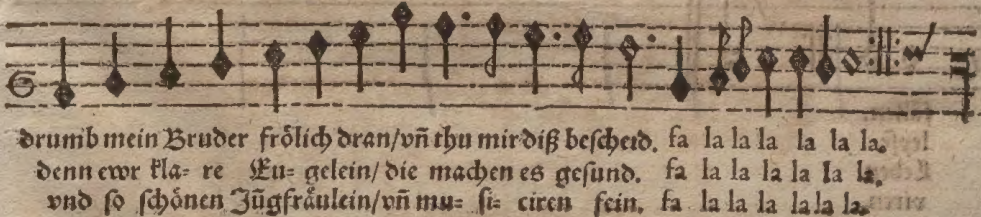 drumb mein Bruder frölich dran/ vñ thu mir diß bescheid. fa la la la la la la.
denn ewr kla⸗ re Eu⸗ gelein/ die machen es gesund. fa la la la la la la.
vnd so schönen Jũgfräulein/ vñ mu⸗ si⸗ ciren fein. fa la la la la la.